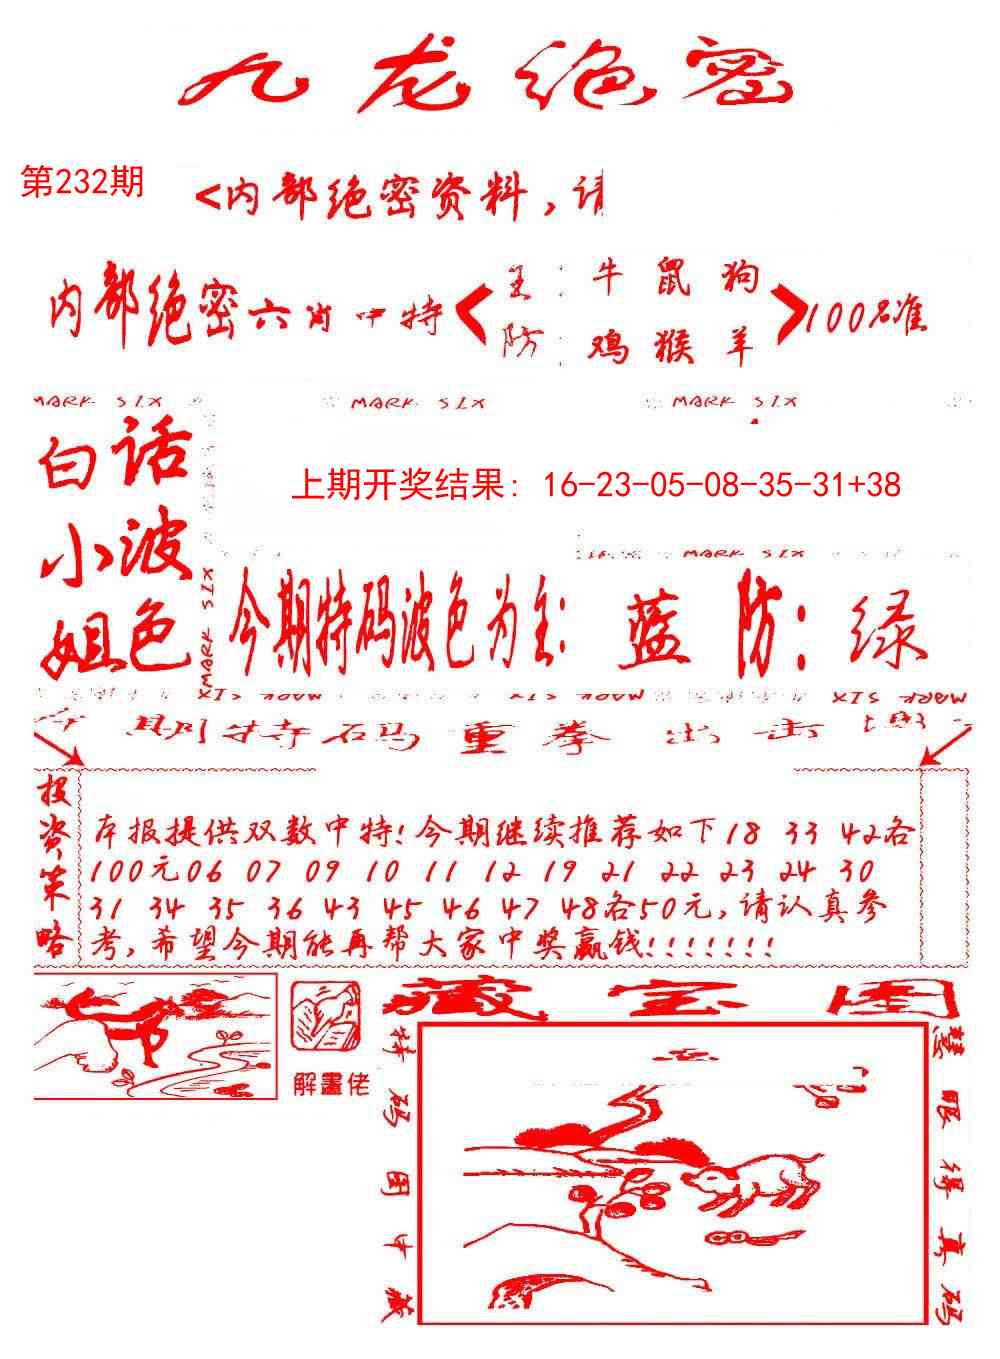 九龙绝密
第232期
<内部绝密资料,请
内部绝密六肖中特<主:牛 鼠 狗>100%准
防:鸡 猴 羊
MARK SIX MARK SIX MARK SIX
白话
小波
姐色
上期开奖结果: 16-23-05-08-35-31+38
MARK SIX
MARK SIX
今期特码波色为主:蓝 防:绿
MARK SIX MARK SIX MARK SIX
期特码重拳出击
投资策略
本报提供双数中特!今期继续推荐如下18 33 42各
100元06 07 09 10 11 12 19 21 22 23 24 30
31 34 35 36 43 45 46 47 48各50元,请认真参
考,希望今期能再帮大家中奖赢钱!!!!!!!
藏宝图
解畫佬
特码图中藏
慧眼得真码